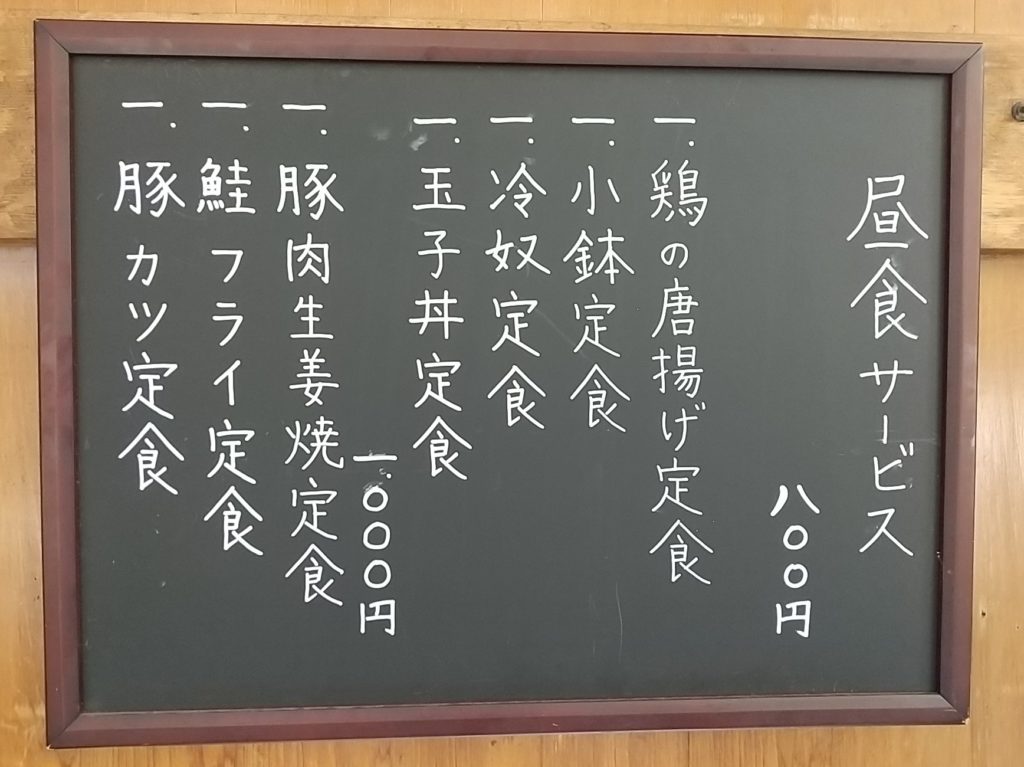 昼食サービス
八〇〇円
一.鶏の唐揚げ定食
一.小鉢定食
一.冷奴定食
一.玉子丼定食
一.〇〇〇円
一.豚肉生姜焼定食
一.鮭フライ定食
一.豚カツ定食